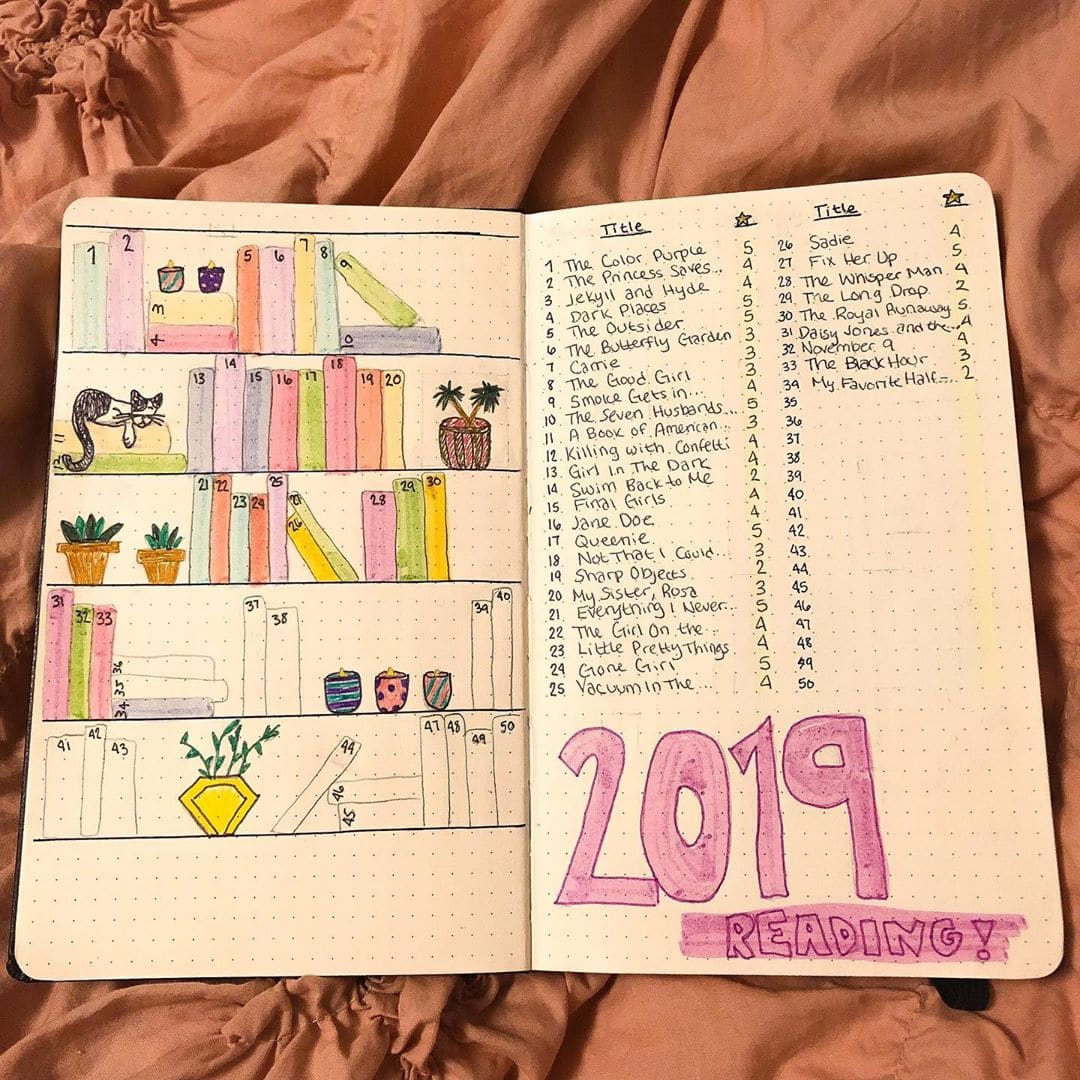 1 2 3 4 5 6 7 8 9 10
11 12 13 14 15 16 17 18 19 20
21 22 23 24 25 26 27 28 29 30
31 32 33 34 35 36 37 38 39 40
41 42 43 44 45 46 47 48 49 50
Title
1 The Color Purple 5
2 The Princess Saves... 4
3. Jekyll and Hyde 4
4 Dark Places 5
5 The Outsider 5
6 The Butterfly Garden 3
7 Carrie 3
8 The Good Girl 3
9 Smoke Gets in... 4
10 The Seven Husbands... 5
11 A Book of American... 3
12 Killing with Confetti 4
13 Girl In The Dark 4
14 Swim Back to Me 2
15 Final Girls 4
16 Jane Doe 4
17 Queenie 5
18 Not That I Could... 3
19 Sharp Objects 2
20 My Sister, Rosa 3
21 Everything I Never... 5
22 The Girl On the... 4
23 Little Pretty Things 4
24 Gone Girl 5
25 Vacuum In The... 4
Title
26 Sadie 4
27 Fix Her Up 5
28 The Whisper Man 4
29 The Long Drop 2
30 The Royal Runaway 5
31 Daisy Jones and the... 4
32 November 9 4
33 The Black Hour 3
34 My Favorite Half-... 2
35
36
37
38
39
40
41
42
43
44
45
46
47
48
49
50
2019
READING!